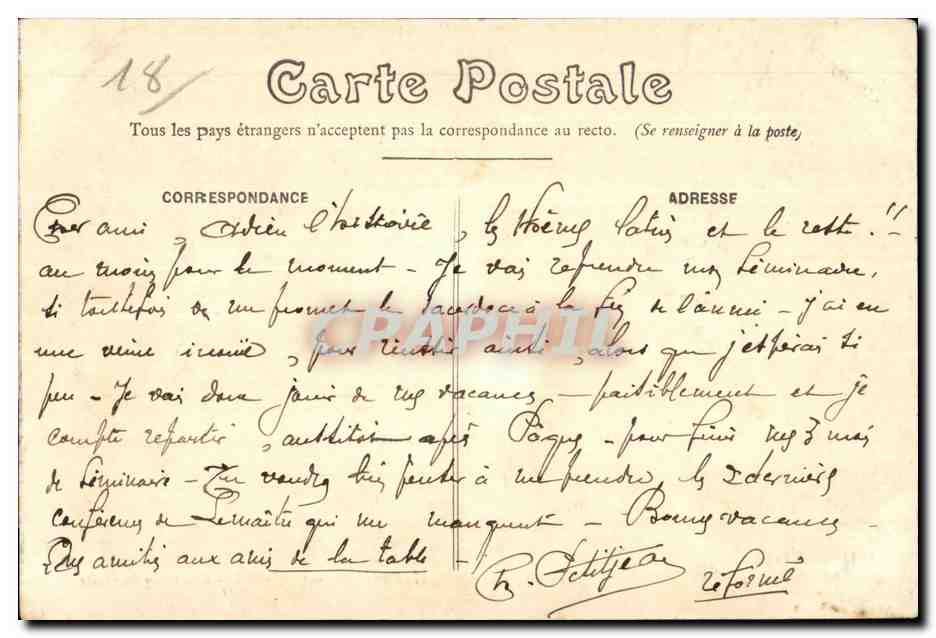 18/
Carte Postale
Tous les pays étrangers n'acceptent pas la correspondance au recto. (Se renseigner à la poste)
CORRESPONDANCE
ADRESSE
Cher ami, Adieu l'histoire, les thèmes latins et le reste!!
au moins pour le moment - Je vais reprendre mon Séminaire,
si toutefois on me promet le sacerdoce à la fin de l'année - j'ai eu
une veine inouïe, pour réussir ainsi, alors que j'espérais si
peu - Je vais donc jouir de mes vacances - paisiblement et je
compte repartir, aussitôt après Pâques - pour finir mes 3 mois
de Séminaire - Tu voudras bien penser à me prendre les 2 dernières
conférences de Lemaître qui me manquent - Bonnes vacances -
Mes amitiés aux amis de la table
Ch. Petitjean
réformé
CPAPHIL